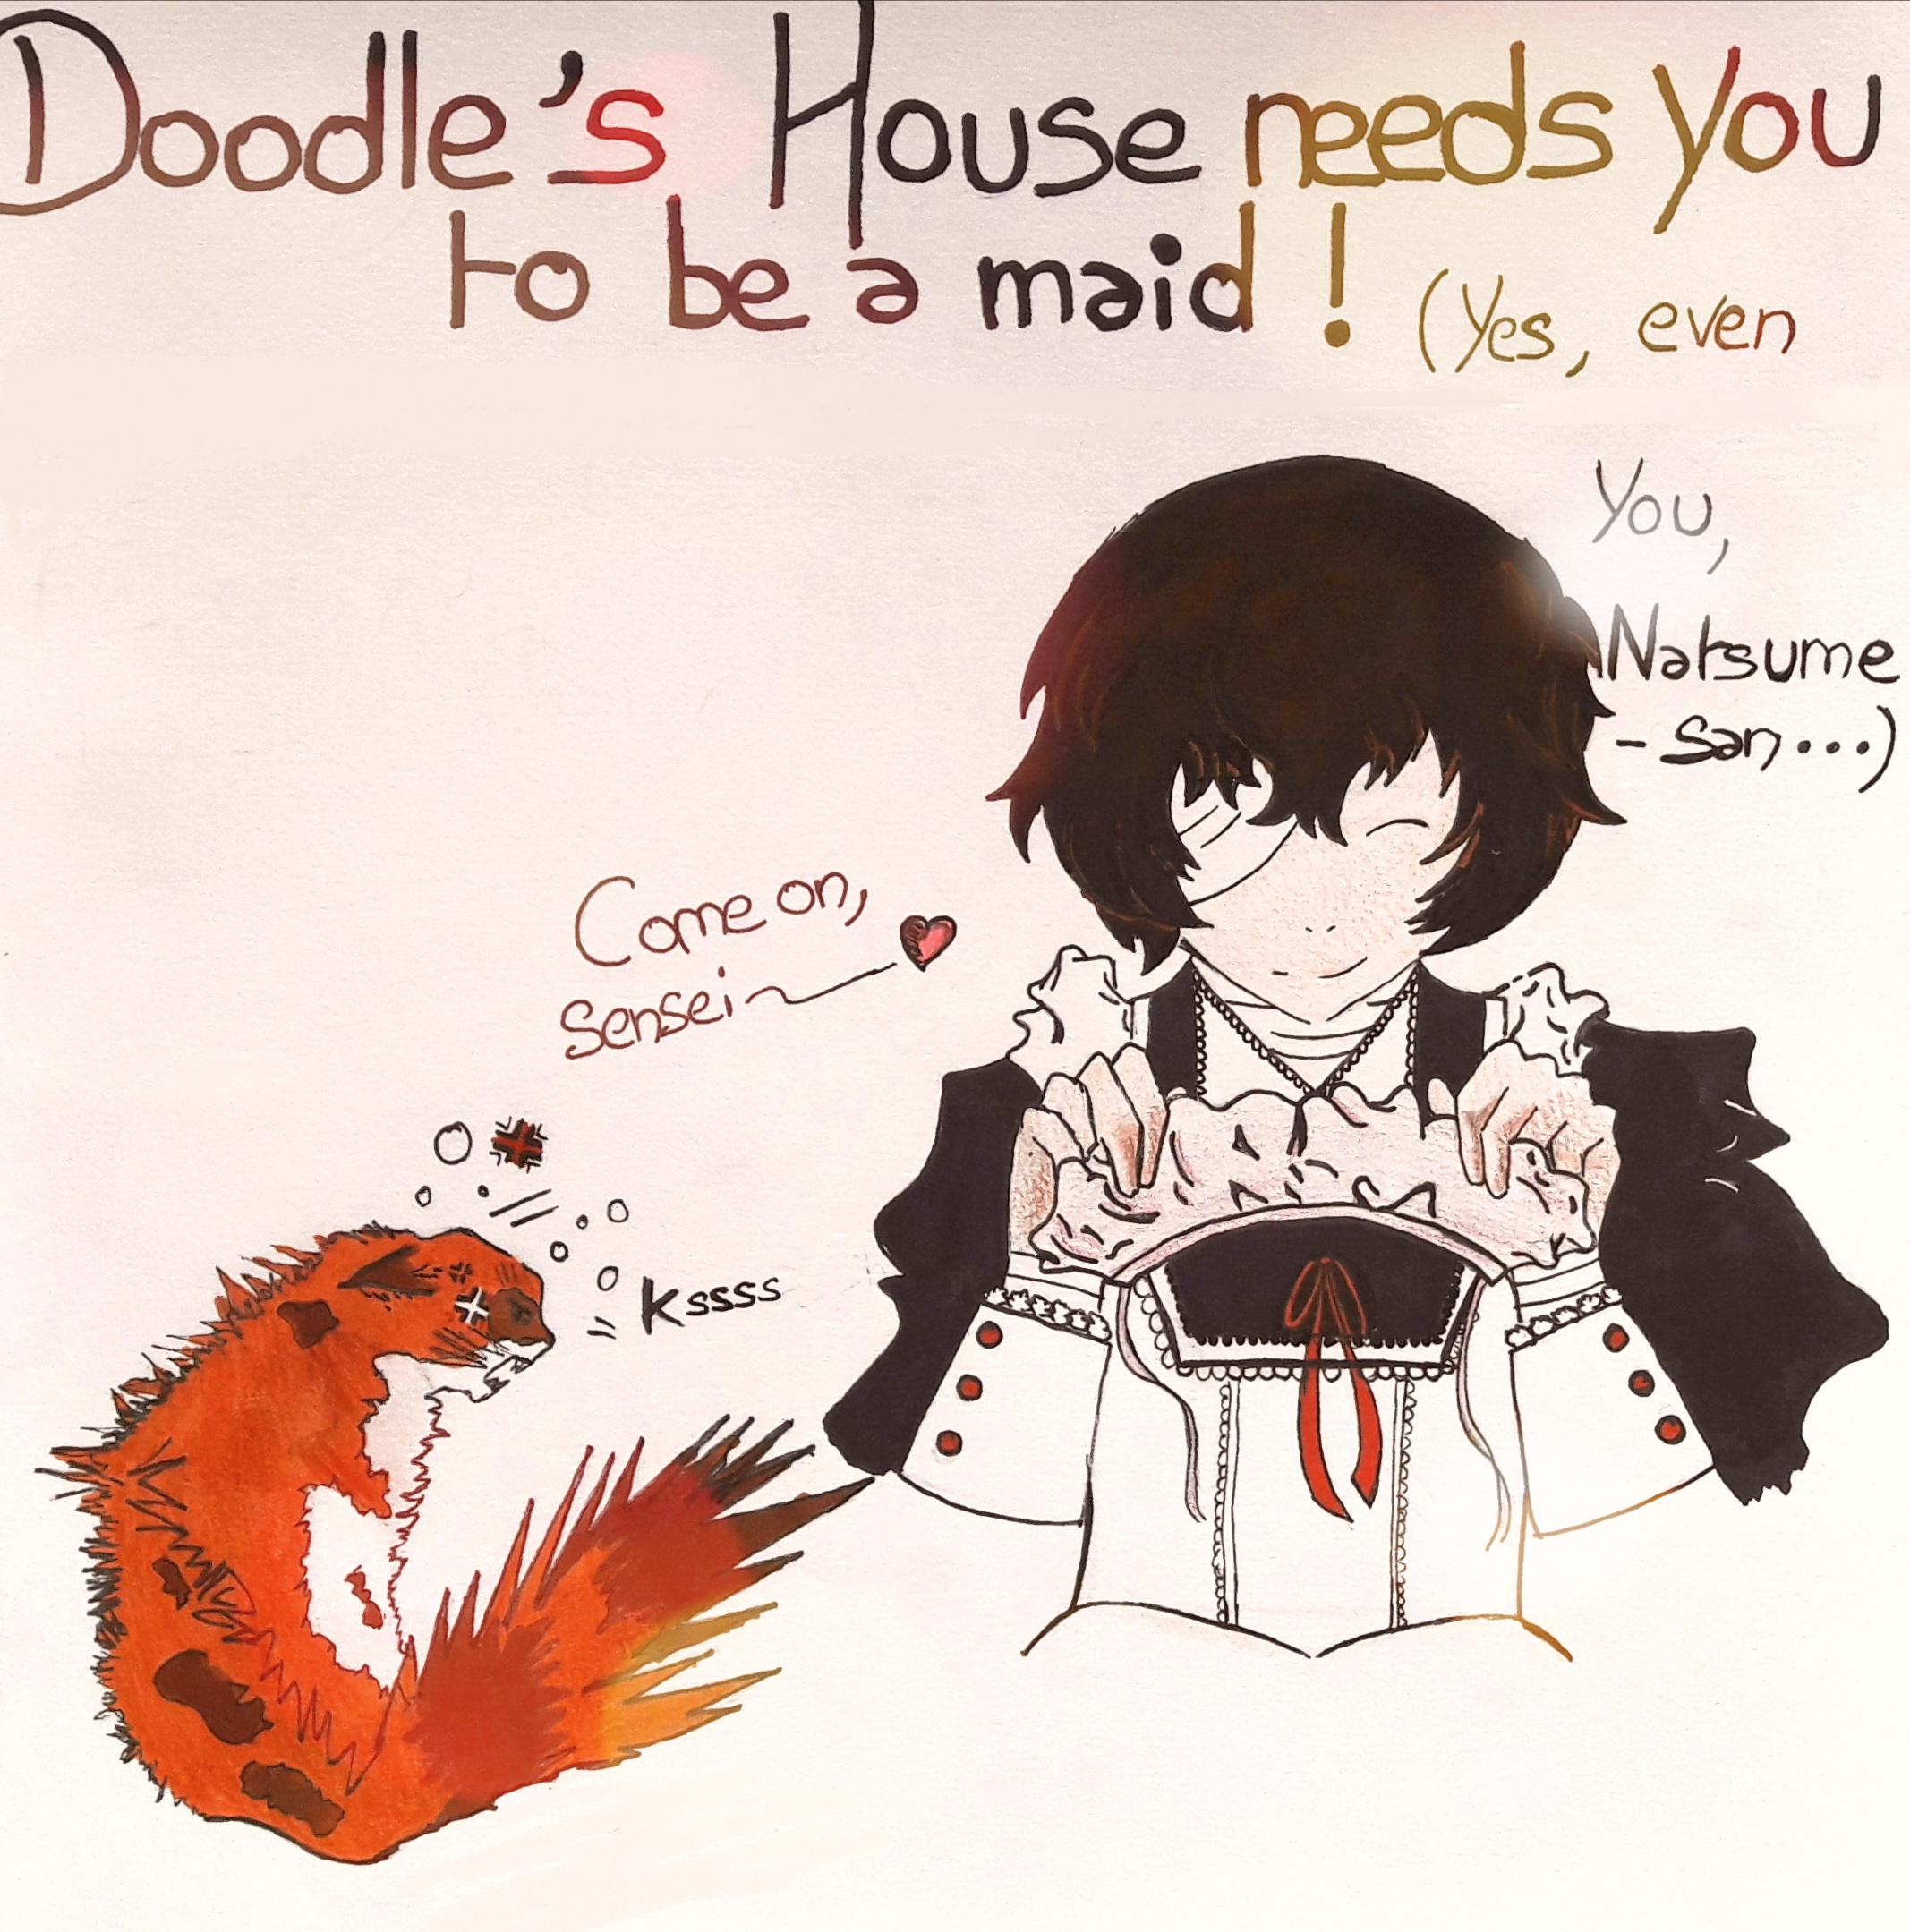 Doodle's House needs you
to be a maid! (Yes, even
you,
Natsume
-san...)
Come on,
sensei~
kssss